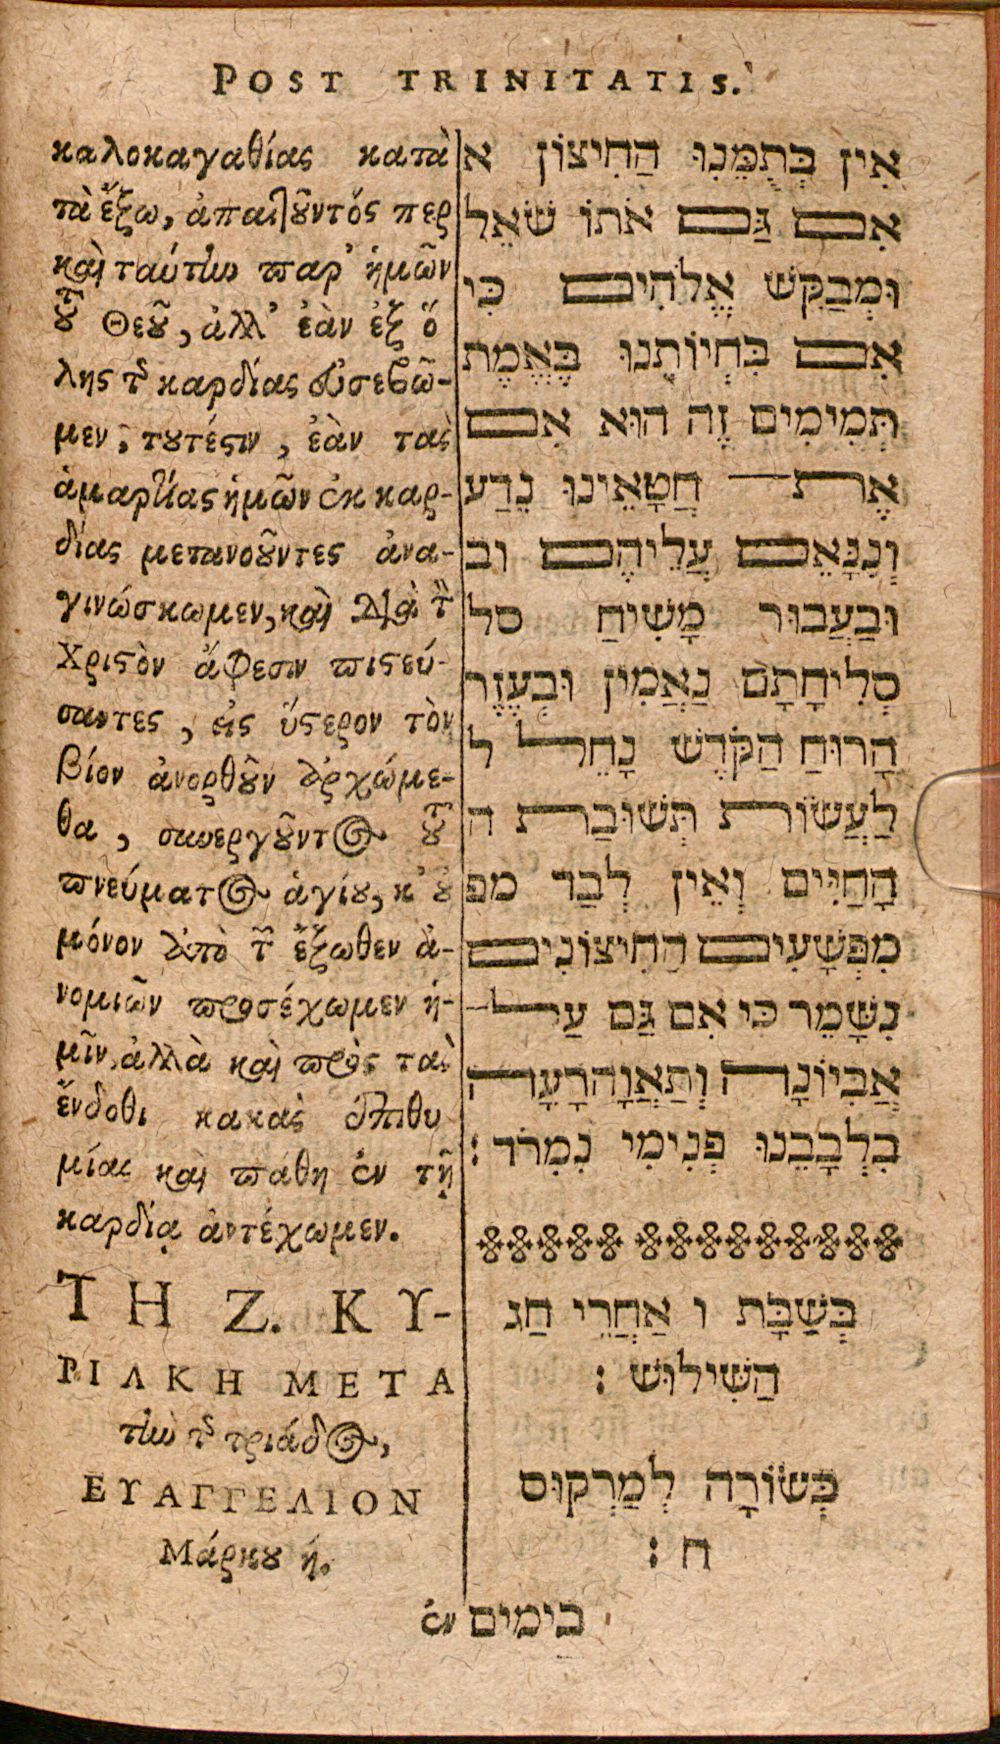 POST TRINITATIS.
καλοκαγαθίας κατὰ
τὰ ἔξω, ἀπαιτοῦντός περ
καὶ ταύτην παρ' ἡμῶν
τοῦ Θεοῦ, ἀλλ' ἐὰν ἐξ ὅ
λης τῆς καρδίας εὐσεβῶ-
μεν, τουτέστιν, ἐὰν τὰς
ἁμαρτίας ἡμῶν ἐκ καρ-
δίας μετανοοῦντες ἀνα-
γινώσκωμεν, καὶ διὰ τὸν
Χριστὸν ἄφεσιν πιστεύ-
σαντες, εἰς ὕστερον τὸν
βίον ἀνορθοῦν ἀρχώμε-
θα, συνεργοῦντος τοῦ
πνεύματος ἁγίου, κ' οὐ
μόνον ἀπὸ τῶν ἔξωθεν ἀ-
νομιῶν προσέχωμεν ἡ-
μῖν, ἀλλὰ καὶ πρὸς τὰς
ἔνδοθι κακὰς ἐπιθυ
μίας καὶ πάθη ἐν τῇ
καρδίᾳ ἀντέχωμεν.
ΤΗ Ζ. ΚΥ-
ΡΙΑΚΗ ΜΕΤΑ
τὴν τῆς τριάδος,
ΕΥΑΓΓΕΛΙΟΝ
Μάρκου ή.
ἐν
אִין בְּתֻמֵּנִוּ הַחִיצוֹן א
אִם גַּם אֹתוֹ שֹׁאֵל
וּמְבַקִּשׁ אֱלֹהִים כִּי
אִם בִּחְיוֹתֵנוּ בֶּאֱמֶת
תְּמִימִים זֶה הוּא אִם
אֶת חֲטָאֵינוּ נֵדַע
וְנִנָּאֵם עֲלֵיהֶם וב
וּבַעֲבוּר מָשִׁיחַ סל
סְלִיחָתָם נַאֲמִין וּבְעֶזֶר
הָרוּחַ הַקֹּדֶשׁ נָחֵל ל
לַעֲשׂוֹת תְּשׁוּבַת ה
הַחַיִּים וְאֵין לְבַד מפ
מִפְּשָׁעִים הַחִיצוֹנִים
נִשָּׁמֵר כִּי אִם גַּם עַל
אֲבִיוֹנָה וְתַאֲוָה רָעָה
בִּלְבָבֵנוּ פְּנִימִי נִמְרֹד :
בְּשַׁבָּת ו אַחֲרֵי חַג
הַשִּׁילוּשׁ :
בְּשׂוֹרָה לְמַרְקוּס
ח :
בימים